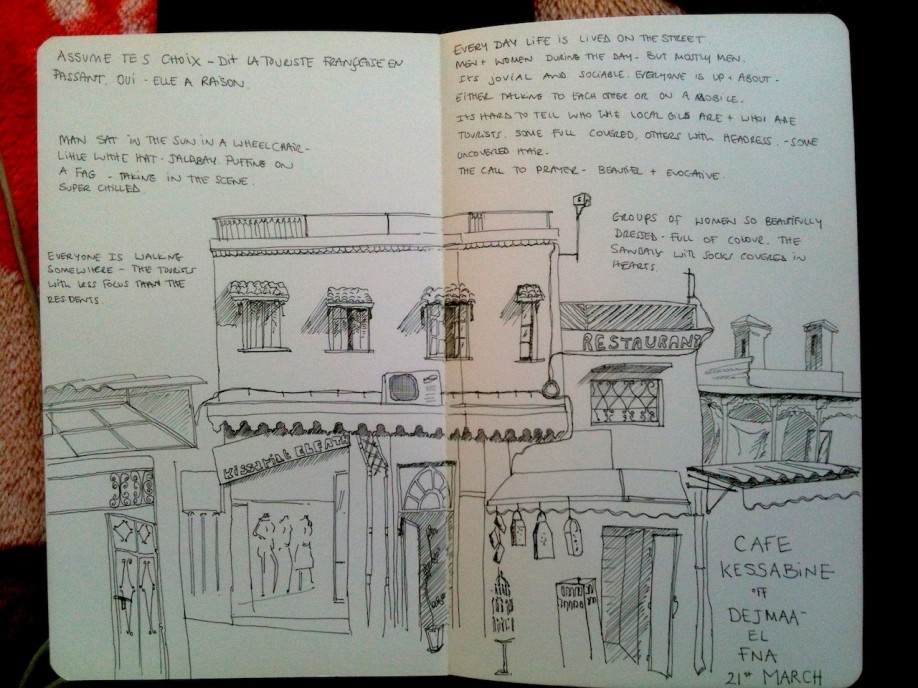 ASSUME TES CHOIX - DIT LA TOURISTE FRANÇAISE EN
PASSANT. OUI - ELLE A RAISON.
MAN SAT IN THE SUN IN A WHEELCHAIR -
LITTLE WHITE HAT - JALABAY. PUFFING ON
A FAG - TAKING IN THE SCENE.
SUPER CHILLED
EVERYONE IS WALKING
SOMEWHERE - THE TOURISTS
WITH LESS FOCUS THAN THE
RESIDENTS
EVERY DAY LIFE IS LIVED ON THE STREET.
MEN + WOMEN DURING THE DAY - BUT MOSTLY MEN.
ITS JOVIAL AND SOCIABLE. EVERYONE IS UP + ABOUT -
EITHER TALKING TO EACH OTHER OR ON A MOBILE.
ITS HARD TO TELL WHO THE LOCAL GILS ARE + WHO ARE
TOURISTS. SOME FULL COVERED, OTHERS WITH HEADRESS. - SOME
UNCOVERED HAIR.
THE CALL TO PRAYER - BEAUTIFUL + EVOCATIVE.
GROUPS OF WOMEN SO BEAUTIFULLY
DRESSED - FULL OF COLOUR. THE
SANDALS WITH SOCKS COVERED IN
HEARTS.
RESTAURANT
CAFE
KESSABINE
OFF
DEJMAA-
EL
FNA
21ST MARCH